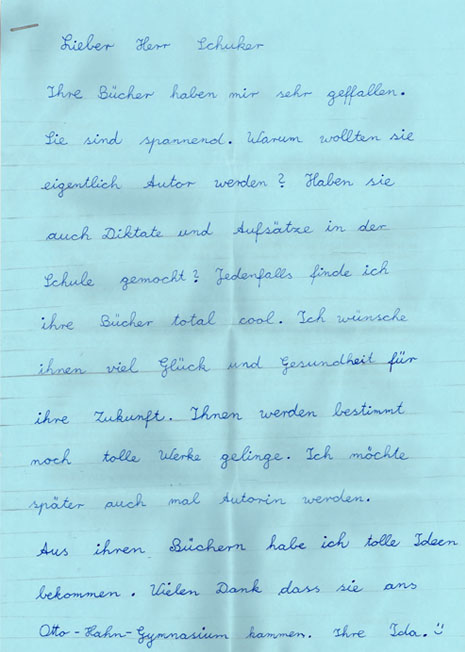 Lieber Herr Schuker
Ihre Bücher haben mir sehr geffallen.
Sie sind spannend. Warum wollten sie
eigentlich Autor werden? Haben sie
auch Diktate und Aufsätze in der
Schule gemocht? Jedenfalls finde ich
ihre Bücher total cool. Ich wünsche
ihnen viel Glück und Gesundheit für
ihre Zukunft. Ihnen werden bestimmt
noch tolle Werke gelinge. Ich möchte
später auch mal Autorin werden.
Aus ihren Büchern habe ich tolle Ideen
bekommen. Vielen Dank dass sie ans
Otto-Hahn-Gymnasium kammen. Ihre Ida.